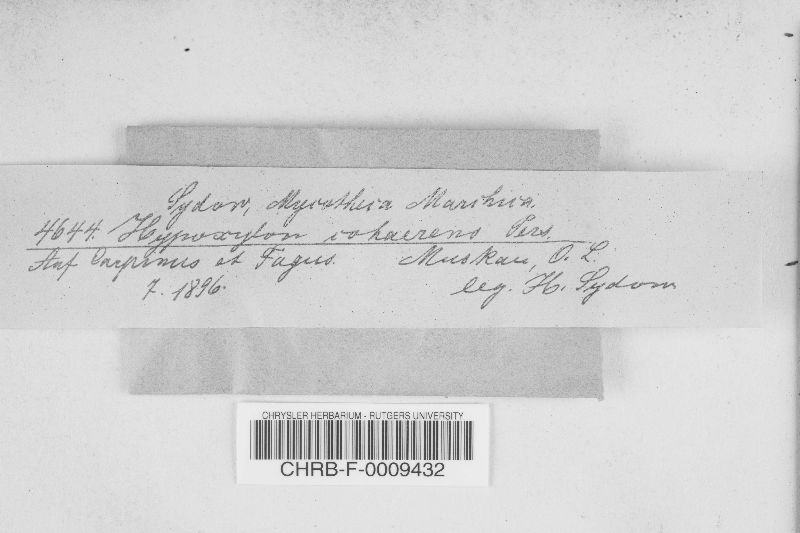 Sydow, Mycotheca Marchica.
4644. Hypoxylon cohaerens Pers.
Auf Carpinus et Fagus. Muskau, O. L.
7. 1896. leg. H. Sydow
CHRYSLER HERBARIUM - RUTGERS UNIVERSITY
CHRB-F-0009432